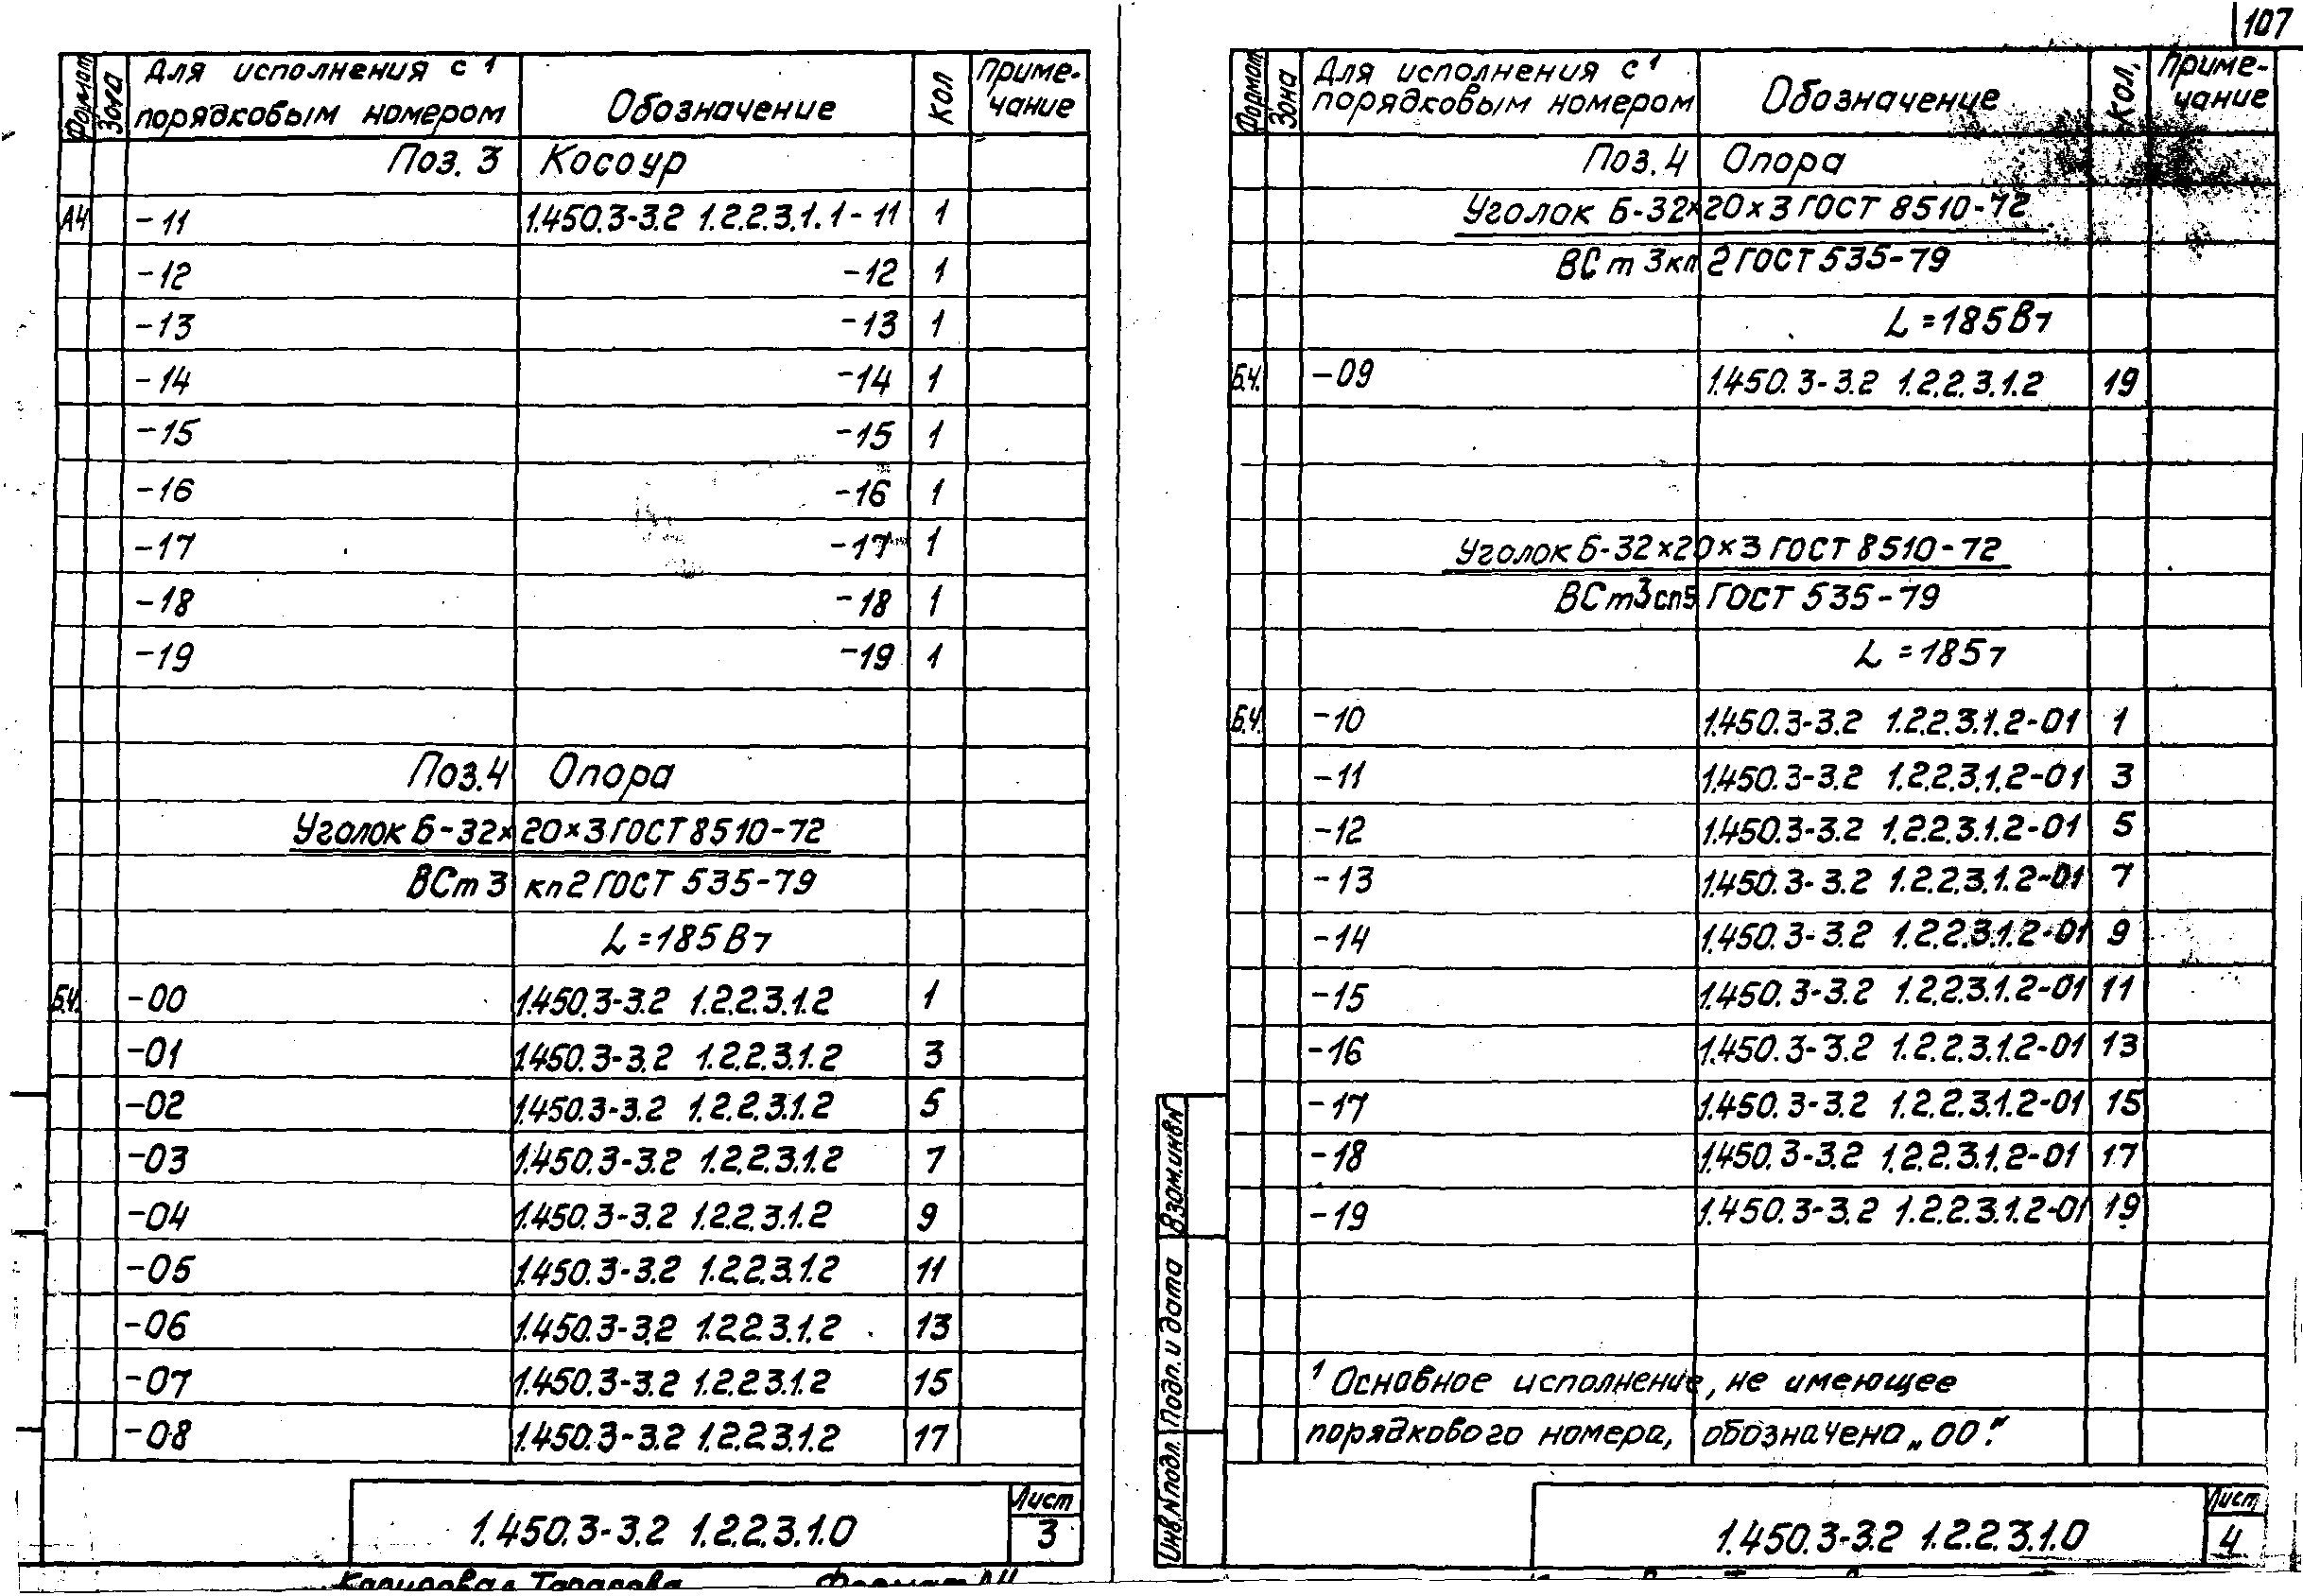 107
Формат Зона Для исполнения с 1 порядковым номером Обозначение Кол Приме-чание
Поз. 3 Косоур
А4 -11 1.450.3-3.2 1.2.2.3.1.1-11 1
-12 -12 1
-13 -13 1
-14 -14 1
-15 -15 1
-16 -16 1
-17 -17 1
-18 -18 1
-19 -19 1
Поз.4 Опора
Уголок Б-32×20×3 ГОСТ 8510-72
ВСт 3 кп2 ГОСТ 535-79
L=185В7
Б.Ч. -00 1.450.3-3.2 1.2.2.3.1.2 1
-01 1.450.3-3.2 1.2.2.3.1.2 3
-02 1.450.3-3.2 1.2.2.3.1.2 5
-03 1.450.3-3.2 1.2.2.3.1.2 7
-04 1.450.3-3.2 1.2.2.3.1.2 9
-05 1.450.3-3.2 1.2.2.3.1.2 11
-06 1.450.3-3.2 1.2.2.3.1.2 13
-07 1.450.3-3.2 1.2.2.3.1.2 15
-08 1.450.3-3.2 1.2.2.3.1.2 17
1.450.3-3.2 1.2.2.3.1.0
Лист
3
Копировал Тарасова Формат А4
Формат Зона Для исполнения с 1 порядковым номером Обозначение Кол. Приме-чание
Поз.4 Опора
Уголок Б-32×20×3 ГОСТ 8510-72
ВСт 3кп 2 ГОСТ 535-79
L=185В7
Б.Ч. -09 1.450.3-3.2 1.2.2.3.1.2 19
Уголок Б-32×20×3 ГОСТ 8510-72
ВСт3сп5 ГОСТ 535-79
L=1857
Б.Ч. -10 1.450.3-3.2 1.2.2.3.1.2-01 1
-11 1.450.3-3.2 1.2.2.3.1.2-01 3
-12 1.450.3-3.2 1.2.2.3.1.2-01 5
-13 1.450.3-3.2 1.2.2.3.1.2-01 7
-14 1.450.3-3.2 1.2.2.3.1.2-01 9
-15 1.450.3-3.2 1.2.2.3.1.2-01 11
-16 1.450.3-3.2 1.2.2.3.1.2-01 13
-17 1.450.3-3.2 1.2.2.3.1.2-01 15
-18 1.450.3-3.2 1.2.2.3.1.2-01 17
-19 1.450.3-3.2 1.2.2.3.1.2-01 19
1 Основное исполнение, не имеющее
порядкового номера, обозначено „00".
Взам.инв.N
Подп. и дата
Инв.N подл.
1.450.3-3.2 1.2.2.3.1.0
Лист
4